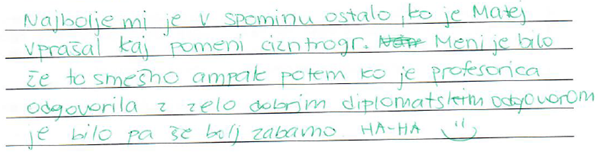 Najbolje mi je v spominu ostalo, ko je Matej
vprašal kaj pomeni cizntrogr. Meni je bilo
že to smešno ampak potem ko je profesorica
odgovorila z zelo dobrim diplomatskim odgovorom
je bilo pa še bolj zabavno HA-HA